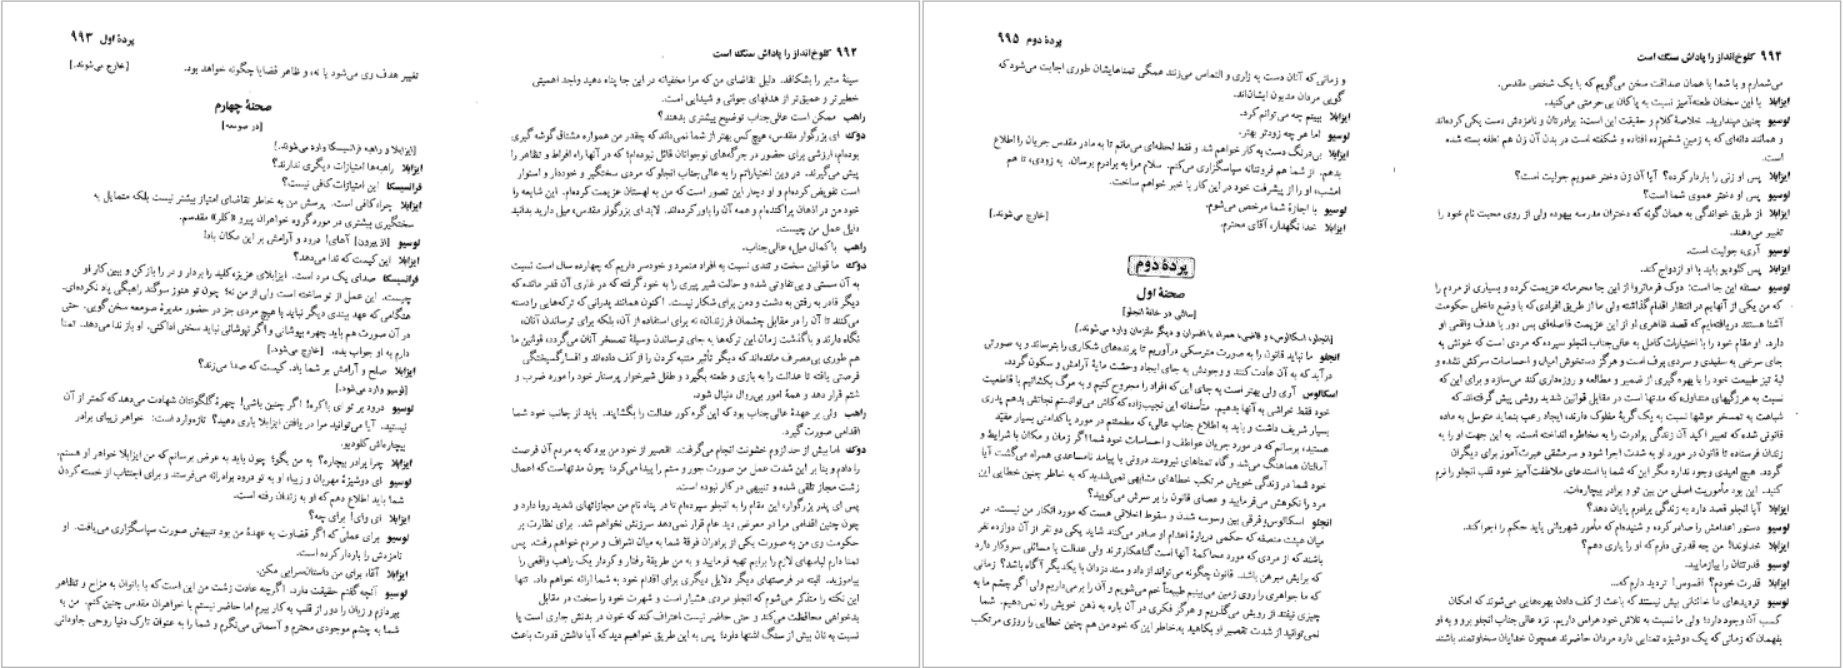 ۹۹۲ کلوخ‌انداز را پاداش سنگ است
سینهٔ ستبر را بشکافد. دلیل تقاضای من که مرا مخفیانه در این جا پناه دهید واجد اهمیتی
خطیرتر و عمیق‌تر از هدفهای جوانی و شیدایی است.
راهب ممکن است عالی‌جناب توضیح بیشتری بدهند؟
دوک ای بزرگوار مقدس، هیچ‌کس بهتر از شما نمی‌داند که چقدر من همواره مشتاق گوشه گیری
بوده‌ام، ارزشی برای حضور در جرگه‌های نوجوانان قائل نبوده‌ام؛ که در آنها راه افراط و تظاهر را
پیش می‌گیرند. در وین اختیاراتم را به عالی‌جناب انجلو که مردی سختگیر و خوددار و استوار
است تفویض کرده‌ام و او دچار این تصور است که من به لهستان عزیمت کرده‌ام. این شایعه را
خود من در اذهان پراکنده‌ام و همه آن را باور کرده‌اند. لابد ای بزرگوار مقدس، میل دارید بدانید
دلیل عمل من چیست.
راهب با کمال میل، عالی‌جناب.
دوک ما قوانین سخت و تندی نسبت به افراد متمرد و خودسر داریم که چهارده سال است نسبت
به آن سستی و بی‌تفاوتی شده و حالت شیر پیری را به خود گرفته که در غاری آن قدر مانده که
دیگر قادر به رفتن به دشت و دمن برای شکار نیست. اکنون همانند پدرانی که ترکه‌هایی را دسته
می‌کنند تا آن را در مقابل چشمان فرزندان، نه برای استفاده از آن، بلکه برای ترساندن آنان،
نگاه دارند و با گذشت زمان این ترکه‌ها به جای ترساندن وسیلهٔ تمسخر آنان می‌گردد، قوانین ما
هم طوری بی‌مصرف مانده‌اند که دیگر تأثیر متنبه کردن را از کف داده‌اند و افسارگسیختگی
فرصتی یافته تا عدالت را به بازی و طعنه بگیرد و طفل شیرخوار پرستار خود را مورد ضرب و
شتم قرار دهد و همهٔ امور بی‌روال دنبال شود.
راهب ولی بر عهدهٔ عالی‌جناب بود که این گره کور عدالت را بگشایند. باید از جانب خود شما
اقدامی صورت گیرد.
دوک اما بیش از حد لزوم خشونت انجام می‌گرفت. تقصیر از خود من بود که به مردم آن فرصت
را دادم و بنا بر این شدت عمل من صورت جور و ستم را پیدا می‌کرد؛ چون مدتهاست که اعمال
زشت مجاز تلقی شده و تنبیهی در کار نبوده است.
پس ای پدر بزرگوار، این مقام را به انجلو سپرده‌ام تا در پناه نام من مجازاتهای شدید روا دارد و
چون چنین اقدامی مرا در معرض دید عام قرار نمی‌دهد سرزنش نخواهم شد. برای نظارت بر
حکومت وی من به صورت یکی از برادران فرقهٔ شما به میان اشراف و مردم خواهم رفت. پس
تمنا دارم لباسهای لازم را برایم تهیه فرمایید و به من طریقهٔ رفتار و کردار یک راهب واقعی را
بیاموزید. البته در فرصتهای دیگر دلایل دیگری برای اقدام خود به شما ارائه خواهم داد. تنها
این نکته را متذکر می‌شوم که انجلو مردی هشیار است و شهرت خود را سخت در مقابل
بدخواهی محافظت می‌کند و حتی حاضر نیست اعتراف کند که خون در بدنش جاری است یا
نسبت به نان بیش از سنگ اشتها دارد؛ پس به این طریق خواهیم دید که آیا داشتن قدرت باعث
پردهٔ اول ۹۹۳
تغییر هدف وی می‌شود یا نه، و ظاهر قضایا چگونه خواهد بود. [خارج می‌شوند.]
صحنهٔ چهارم
[در صومعه]
[ایزابلا و راهبه فرانسیسکا وارد می‌شوند.]
ایزابلا راهبه‌ها امتیازات دیگری ندارند؟
فرانسیسکا این امتیازات کافی نیست؟
ایزابلا چرا، کافی است. پرسش من به خاطر تقاضای امتیاز بیشتر نیست بلکه متمایل به
سختگیری بیشتری در مورد گروه خواهران پیرو «کلر» مقدسم.
لوسیو [از بیرون] آهای! درود و آرامش بر این مکان باد!
ایزابلا این کیست که ندا می‌دهد؟
فرانسیسکا صدای یک مرد است. ایزابلای عزیز، کلید را بردار و در را باز کن و ببین کار او
چیست. این عمل از تو ساخته است ولی از من نه؛ چون تو هنوز سوگند راهبگی یاد نکرده‌ای.
هنگامی که عهد ببندی دیگر نباید با هیچ مردی جز در حضور مدیرهٔ صومعه سخن گویی. حتی
در آن صورت هم باید چهره بپوشانی و اگر نپوشانی نباید سخنی ادا کنی. او باز ندا می‌دهد. تمنا
دارم به او جواب بده. [خارج می‌شود.]
ایزابلا صلح و آرامش بر شما باد. کیست که صدا می‌زند؟
[لوسیو وارد می‌شود.]
لوسیو درود بر تو ای باکره! اگر چنین باشی! چهرهٔ گلگونتان شهادت می‌دهد که کمتر از آن
نیستید. آیا می‌توانید مرا در یافتن ایزابلا یاری دهید؟ تازه‌وارد است: خواهر زیبای برادر
بیچاره‌اش کلودیو.
ایزابلا چرا برادر بیچاره؟ به من بگو؛ چون باید به عرض برسانم که من ایزابلا خواهر او هستم.
لوسیو ای دوشیزهٔ مهربان و زیبا، او به تو درود برادرانه می‌فرستد و برای اجتناب از خسته کردن
شما باید اطلاع دهم که او به زندان رفته است.
ایزابلا ای وای! برای چه؟
لوسیو برای عملی که اگر قضاوت به عهدهٔ من بود تنبیهش صورت سپاسگزاری می‌یافت. او
نامزدش را باردار کرده است.
ایزابلا آقا، برای من داستان‌سرایی مکن.
لوسیو آنچه گفتم حقیقت دارد. اگرچه عادت زشت من این است که با بانوان به مزاح و تظاهر
بپردازم و زبان را دور از قلب به کار برم اما حاضر نیستم با خواهران مقدس چنین کنم. من به
شما به چشم موجودی محترم و آسمانی می‌نگرم و شما را به عنوان تارک دنیا روحی جاودانی
۹۹۴ کلوخ‌انداز را پاداش سنگ است
می‌شمارم و با شما با همان صداقت سخن می‌گویم که با یک شخص مقدس.
ایزابلا با این سخنان طعنه‌آمیز نسبت به پاکان بی‌حرمتی می‌کنید.
لوسیو چنین مپندارید. خلاصهٔ کلام و حقیقت این است: برادرتان و نامزدش دست یکی کرده‌اند
و همانند دانه‌ای که به زمین شخم‌زده افتاده و شکفته است در بدن آن زن هم نطفه بسته شده
است.
ایزابلا پس او زنی را باردار کرده؟ آیا آن زن دختر عمویم جولیت است؟
لوسیو پس او دختر عموی شما است؟
ایزابلا از طریق خواندگی به همان گونه که دختران مدرسه بیهوده ولی از روی محبت نام خود را
تغییر می‌دهند.
لوسیو آری، جولیت است.
ایزابلا پس کلودیو باید با او ازدواج کند.
لوسیو مسئله این جا است: دوک فرمانروا از این جا محرمانه عزیمت کرده و بسیاری از مردم را
که من یکی از آنهایم در انتظار اقدام گذاشته ولی ما از طریق افرادی که با وضع داخلی حکومت
آشنا هستند دریافته‌ایم که قصد ظاهری او از این عزیمت فاصله‌ای بس دور با هدف واقعی او
دارد. او مقام خود را با اختیارات کامل به عالی‌جناب انجلو سپرده که مردی است که خونش به
جای سرخی به سفیدی و سردی برف است و هرگز دستخوش امیال و احساسات سرکش نشده و
لبهٔ تیز طبیعت خود را با بهره‌گیری از ضمیر و مطالعه و روزه‌داری کند می‌سازد و برای این که
نسبت به هرزگیهای متداول، که مدتها است در مقابل قوانین شدید روشی پیش گرفته‌اند که
شباهت به تمسخر موشها نسبت به یک گربهٔ مفلوک دارند، ایجاد رعب بنماید متوسل به ماده
قانونی شده که تعبیر اکید آن زندگی برادرت را به مخاطره انداخته است. به این جهت او را به
زندان فرستاده تا قانون در مورد او به شدت اجرا شود و سرمشقی عبرت‌آموز برای دیگران
گردد. هیچ امیدی وجود ندارد مگر این که شما با استدعای ملاطفت‌آمیز خود قلب انجلو را نرم
کنید. این بود مأموریت اصلی من بین تو و برادر بیچاره‌ات.
ایزابلا آیا انجلو قصد دارد به زندگی برادرم پایان دهد؟
لوسیو دستور اعدامش را صادر کرده و شنیده‌ام که مأمور شهربانی باید حکم را اجرا کند.
ایزابلا خداوندا! من چه قدرتی دارم که او را یاری دهم؟
لوسیو قدرتتان را بیازمایید.
ایزابلا قدرت خودم؟ افسوس! تردید دارم که...
لوسیو تردیدهای ما خائنانی بیش نیستند که باعث از کف دادن بهره‌هایی می‌شوند که امکان
کسب آن وجود دارد؛ ولی ما نسبت به تلاش خود هراس داریم. نزد عالی‌جناب انجلو برو و به او
بفهمان که زمانی که یک دوشیزه تمنایی دارد مردان حاضرند همچون خدایان سخاوتمند باشند
پردهٔ دوم ۹۹۵
و زمانی که آنان دست به زاری و التماس می‌زنند همگی تمناهایشان طوری اجابت می‌شود که
گویی مردان مدیون ایشان‌اند.
ایزابلا ببینم چه می‌توانم کرد.
لوسیو اما هر چه زودتر بهتر.
ایزابلا بی‌درنگ دست به کار خواهم شد و فقط لحظه‌ای می‌مانم تا به مادر مقدس جریان را اطلاع
بدهم. از شما هم فروتنانه سپاسگزاری می‌کنم. سلام مرا به برادرم برسان. به زودی، تا هم
امشب، او را از پیشرفت خود در این کار با خبر خواهم ساخت.
لوسیو با اجازهٔ شما مرخص می‌شوم.
ایزابلا خدا نگهدار، آقای محترم. [خارج می‌شوند.]
پردهٔ دوم
صحنهٔ اول
[سالنی در خانهٔ انجلو]
[انجلو، اسکالوس، و قاضی، همراه با افسران و دیگر ملتزمان وارد می‌شوند.]
انجلو ما نباید قانون را به صورت مترسکی درآوریم تا پرنده‌های شکاری را بترساند و به صورتی
درآید که به آن عادت کنند و وجودش به جای ایجاد وحشت مایهٔ آرامش و سکون گردد.
اسکالوس آری ولی بهتر است به جای این که افراد را مجروح کنیم و به مرگ بکشانیم با قاطعیت
خود فقط خراشی به آنها بدهیم. متأسفانه این نجیب‌زاده که کاش می‌توانستم نجاتش بدهم پدری
بسیار شریف داشت و باید به اطلاع جناب عالی، که مطمئنم در مورد پاکدامنی بسیار مقید
هستید، برسانم که در مورد جریان عواطف و احساسات خود شما، اگر زمان و مکان با شرایط و
آمالتان هماهنگ می‌شد و گاه تمناهای نیرومند درونی با پیامد نامساعدی همراه می‌گشت آیا
خود شما در زندگی خویش مرتکب خطاهای مشابهی نمی‌شدید که به خاطر چنین خطایی این
مرد را نکوهش می‌فرمایید و عصای قانون را بر سرش می‌کوبید؟
انجلو اسکالوس، فرقی بین وسوسه شدن و سقوط اخلاقی هست که مورد انکار من نیست. در
میان هیئت منصفه که حکمی دربارهٔ اعدام او صادر می‌کنند شاید یکی دو نفر از آن دوازده نفر
باشند که از مردی که مورد محاکمهٔ آنها است گناهکارترند ولی عدالت با مسائلی سروکار دارد
که برایش مبرهن باشد. قانون چگونه می‌تواند از داد و ستد دزدان با یکدیگر آگاه باشد؟ زمانی
که ما جواهری را روی زمین می‌بینیم طبیعتاً خم می‌شویم و آن را برمی‌داریم ولی اگر چشم ما به
چیزی نیفتد از رویش می‌گذریم و هرگز فکری در آن باره به ذهن خویش راه نمی‌دهیم. شما
نمی‌توانید از شدت تقصیر او بکاهید به خاطر این که خود من هم چنین خطایی را روزی مرتکب